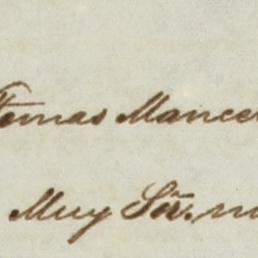 Tomas Mance
Muy Sōr. m